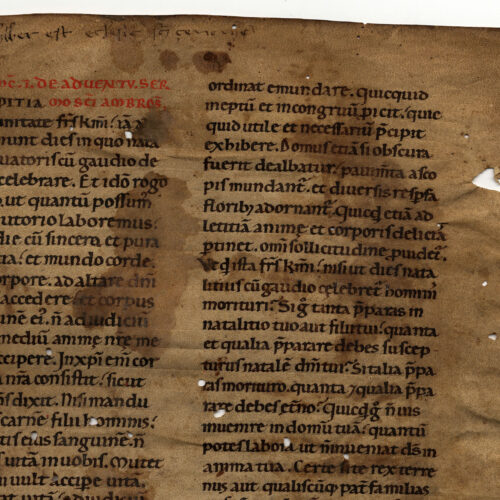 liber est eclesie sci
DE ADVENTU. SER
PITIA. MO SCI AMBROS.
nitate frs kmi: ia a
nunt dies in quo nata
uatoris cu gaudio de
celebrare. Et ido rogo
aut quantu possum
iutorio laboremus:
die cu sincera et pura
tia: et mundo corde.
corpore. ad altare dni
accedere: et corpus
uine ei: n ad iudiciu
mediu anime nre me
ccipere. In xpi eni cor
a nra consistit: sicut
ns dixit. Nisi mandu
carne filii hominis:
tis eius sanguine n
uita in uobis. Mutet
vult accipe uita.
ordinat emundare. quicquid
ineptu et incongruu picit. quic
quid utile et necessariu pcipit
exhibere. Domus etia si obscura
fuerit dealbatur. pauimta asco
pis mundant. et diversis respsa
florib; adornant. Quicqd etia ad
letitia anime et corporis delicia
ptinet. omi sollicitudine puidet.
Ut qd ista frs kmi: nisi ut dies nata
litius cu gaudio celebret homini
morituri. Si g tanta pparas in
natalitio tuo aut filii tui: quanta
et qualia pparare debes suscep
turus natale dni tui: Si talia ppa
ras morituro. quanta 7 qualia ppa
rare debes etno. Quicqd g n uis
inuenire in domu tua: quantu
potes labora ut n inueniat ds in
anima tua. Certe si te rex terre
nus aut qualiscuq; pat familias